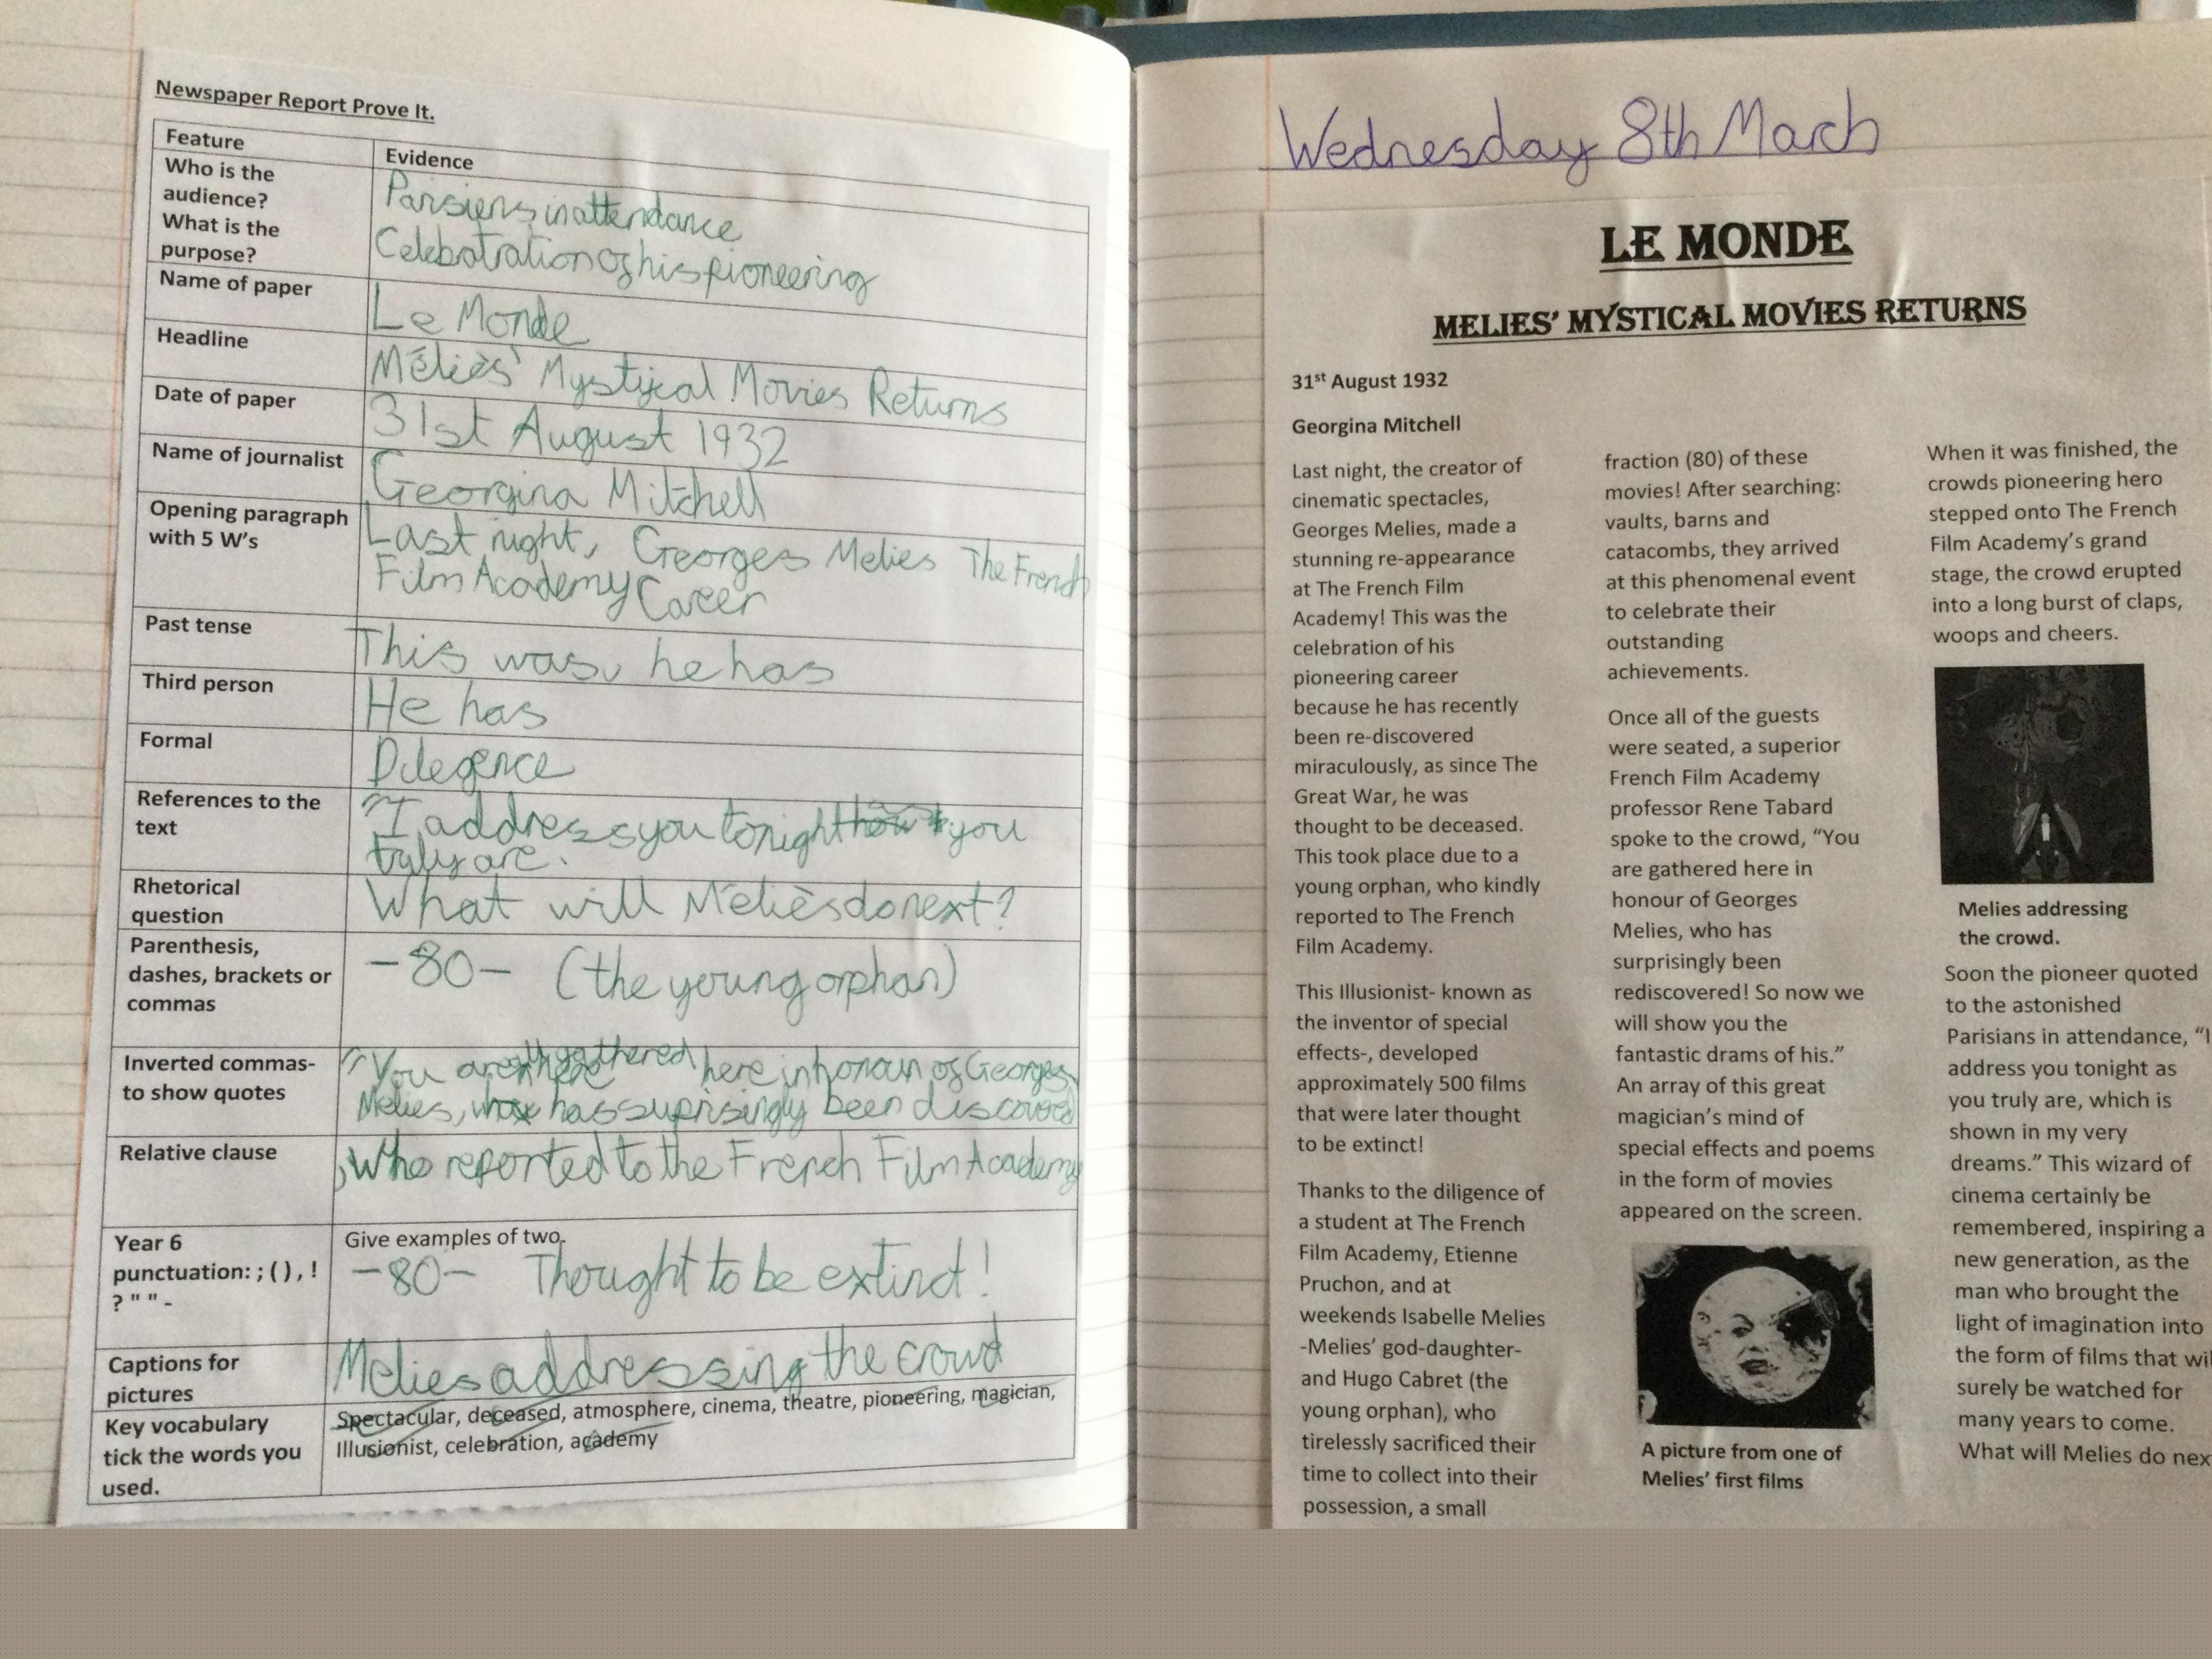 Newspaper Report Prove It.
Feature
Evidence
Who is the
audience?
What is the
purpose?
Parisiens in attendance
Celebatration of his pioneering
Name of paper
Le Monde
Headline
Méliès' Mystical Movies Returns
Date of paper
31st August 1932
Name of journalist
Georgina Mitchell
Opening paragraph
with 5 W's
Last night, Georges Melies The French
Film Academy Career
Past tense
This was, he has
Third person
He has
Formal
Dilegence
References to the
text
"I address you tonight you
truly are.
Rhetorical
question
What will Méliès do next?
Parenthesis,
dashes, brackets or
commas
-80- (the young orphan)
Inverted commas-
to show quotes
"You are gathered here in honour of Georges
Melies, who has suprisingly been discovered
Relative clause
, who reported to the French Film Academy
Year 6
punctuation: ; ( ) , !
? " " -
Give examples of two.
-80- Thought to be extinct!
Captions for
pictures
Melies addressing the crowd
Key vocabulary
tick the words you
used.
Spectacular, deceased, atmosphere, cinema, theatre, pioneering, magician,
Illusionist, celebration, academy
Wednesday 8th March
LE MONDE
MELIES' MYSTICAL MOVIES RETURNS
31st August 1932
Georgina Mitchell
Last night, the creator of
cinematic spectacles,
Georges Melies, made a
stunning re-appearance
at The French Film
Academy! This was the
celebration of his
pioneering career
because he has recently
been re-discovered
miraculously, as since The
Great War, he was
thought to be deceased.
This took place due to a
young orphan, who kindly
reported to The French
Film Academy.
This Illusionist- known as
the inventor of special
effects-, developed
approximately 500 films
that were later thought
to be extinct!
Thanks to the diligence of
a student at The French
Film Academy, Etienne
Pruchon, and at
weekends Isabelle Melies
-Melies' god-daughter-
and Hugo Cabret (the
young orphan), who
tirelessly sacrificed their
time to collect into their
possession, a small
fraction (80) of these
movies! After searching:
vaults, barns and
catacombs, they arrived
at this phenomenal event
to celebrate their
outstanding
achievements.
Once all of the guests
were seated, a superior
French Film Academy
professor Rene Tabard
spoke to the crowd, "You
are gathered here in
honour of Georges
Melies, who has
surprisingly been
rediscovered! So now we
will show you the
fantastic drams of his."
An array of this great
magician's mind of
special effects and poems
in the form of movies
appeared on the screen.
A picture from one of
Melies' first films
When it was finished, the
crowds pioneering hero
stepped onto The French
Film Academy's grand
stage, the crowd erupted
into a long burst of claps,
woops and cheers.
Melies addressing
the crowd.
Soon the pioneer quoted
to the astonished
Parisians in attendance, "I
address you tonight as
you truly are, which is
shown in my very
dreams." This wizard of
cinema certainly be
remembered, inspiring a
new generation, as the
man who brought the
light of imagination into
the form of films that wil
surely be watched for
many years to come.
What will Melies do nex